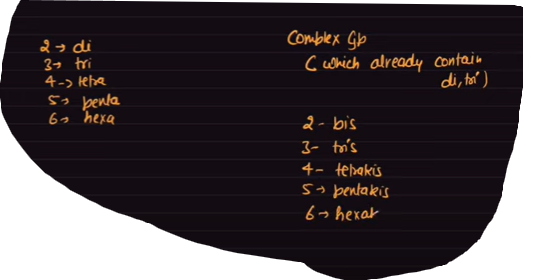 2 → di
3 → tri
4 -> tetra
5 → penta
6 → hexa
Complex Gp
( which already contain
di, tri )
2 - bis
3 - tris
4 - tetrakis
5 → pentakis
6 → hexak